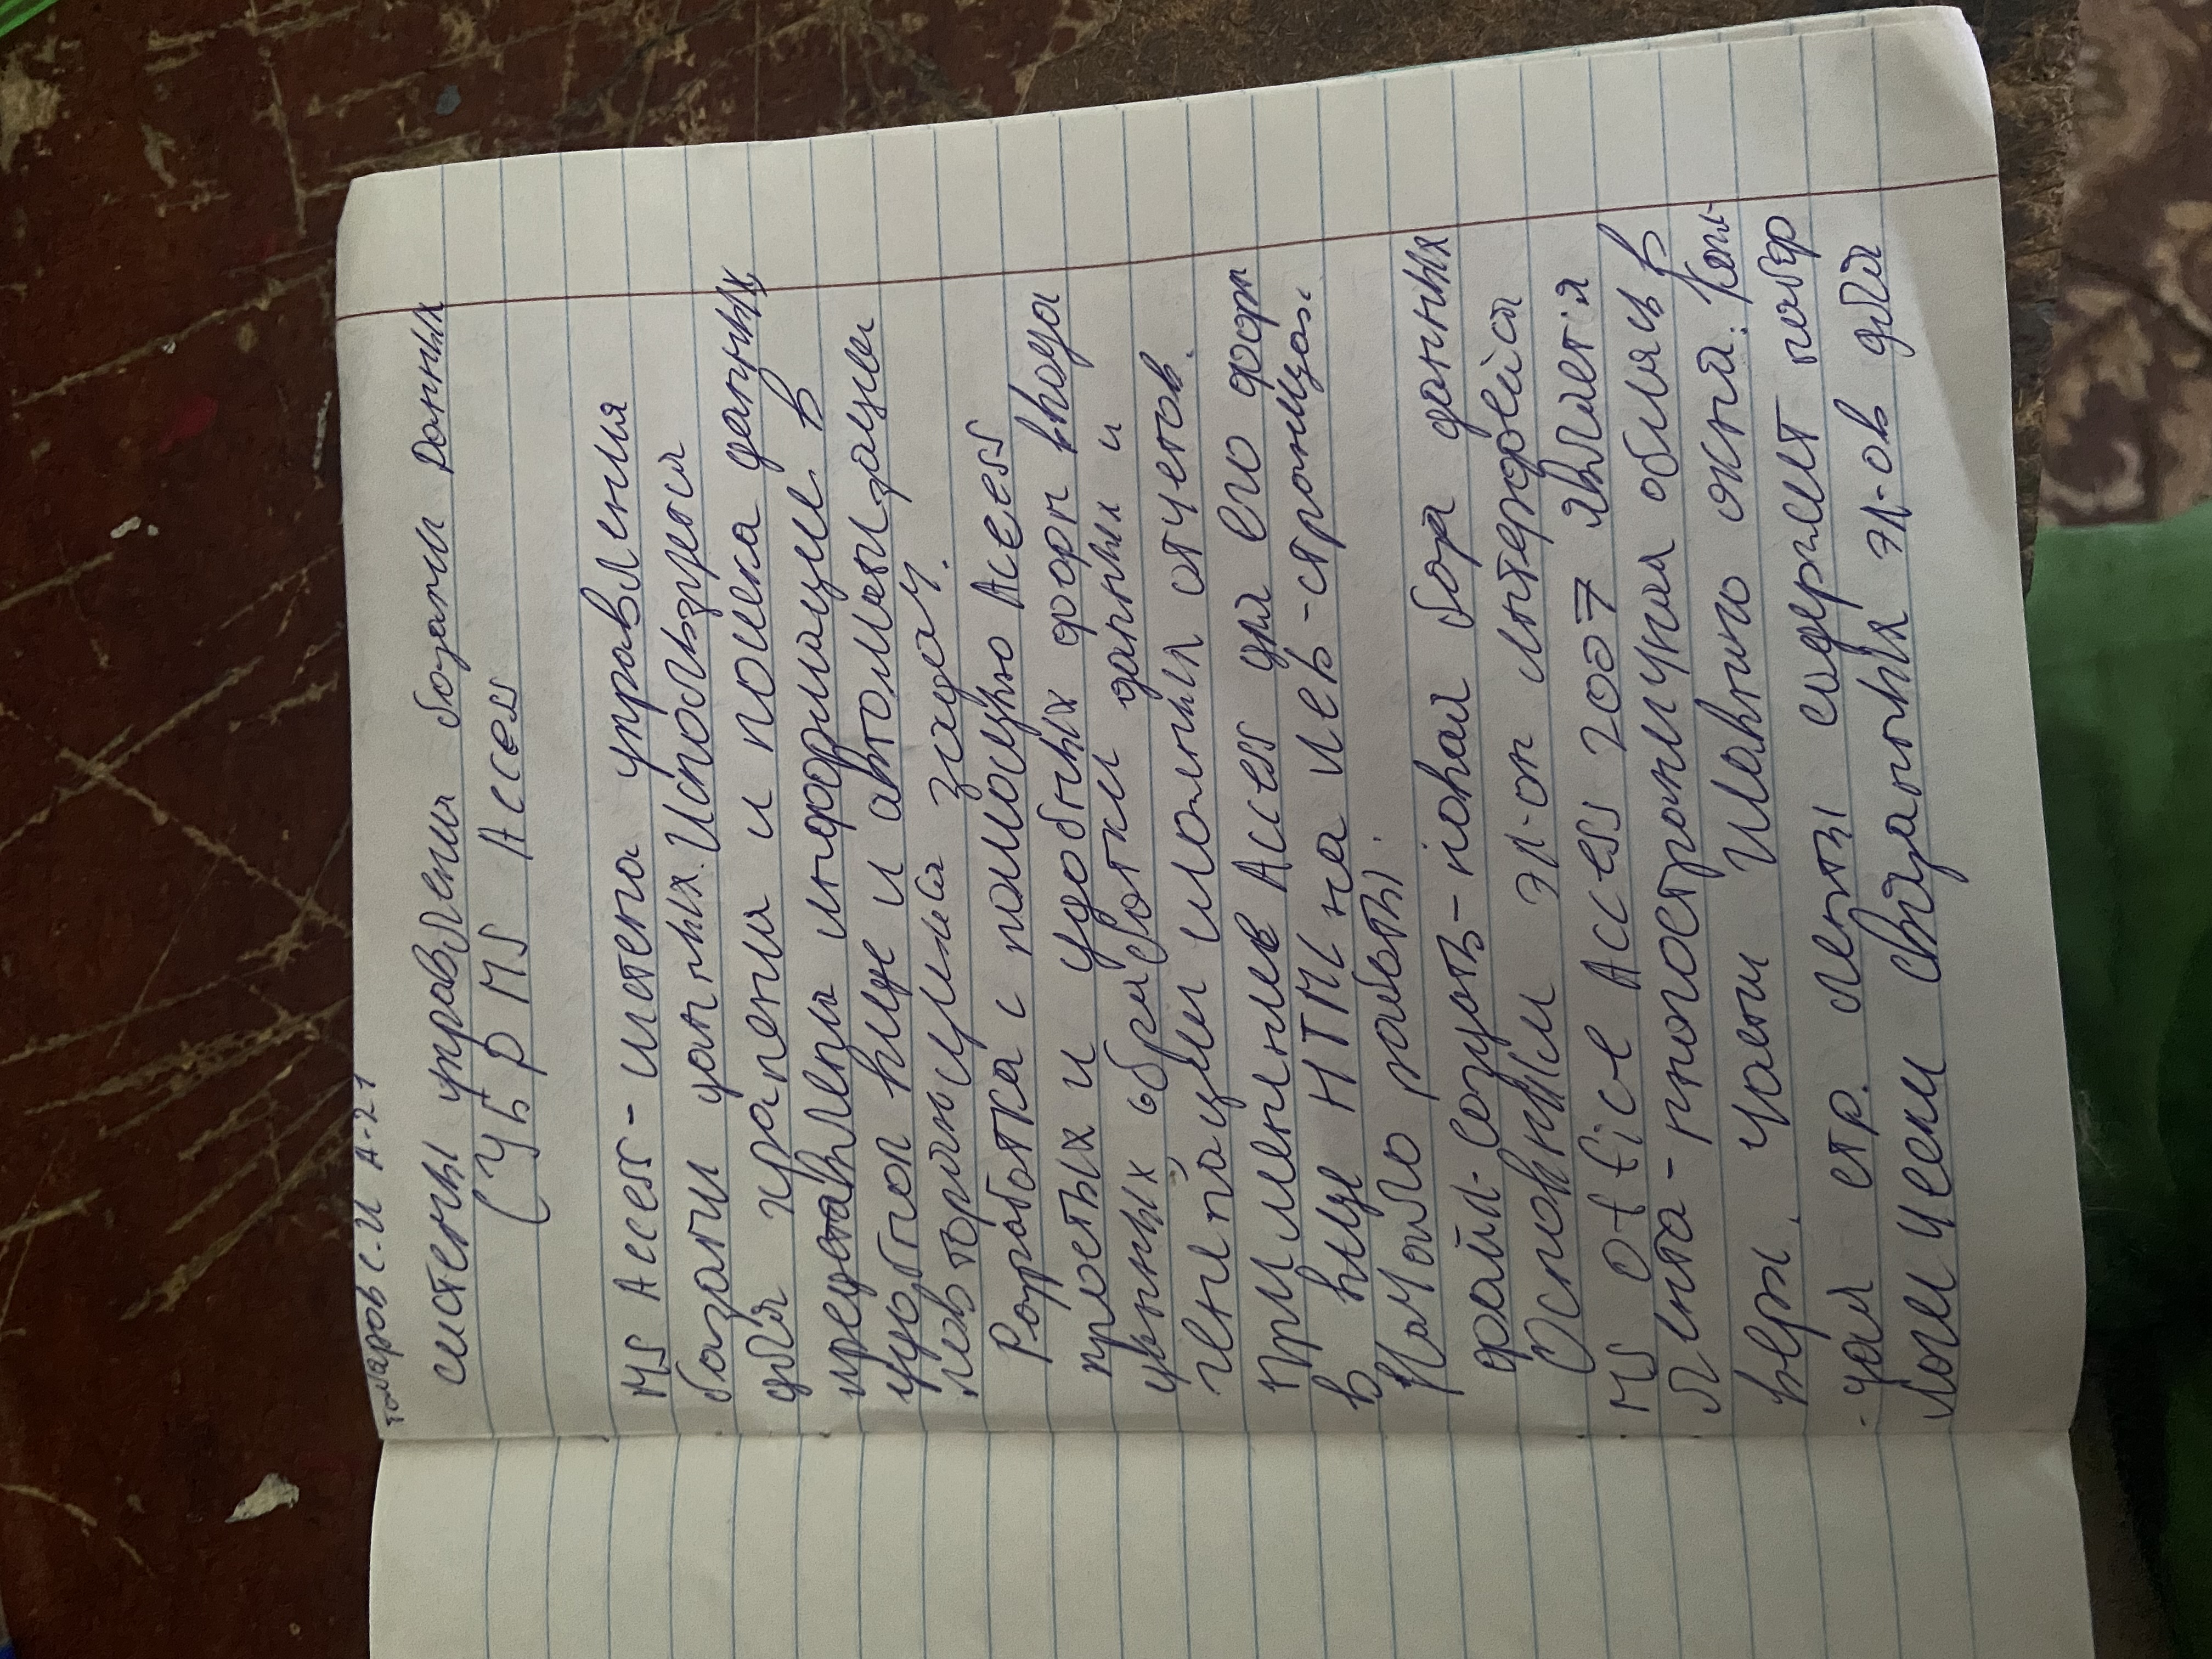 системы управления базами Данных
(УБД MS Access
MS Access - система управления
базами данных. Используется
для хранения и поиска данных,
представления информации в
удобном виде и автоматизации
повторяющихся задач.
Разработка с помощью Access
простых и удобных форм ввода
данных обработки данных и
генерации сложных отчетов.
применение Access для его форм
в виде HTML на web-страницах.
Начало работы.
файл-Создать-новая база данных
Основным эл-ом интерфейса
MS Office Access 2007 является
Лента - многостраничная область в
верх. части главного окна. Каж-
дая стр. ленты содержит набор
логически связанных эл-ов для